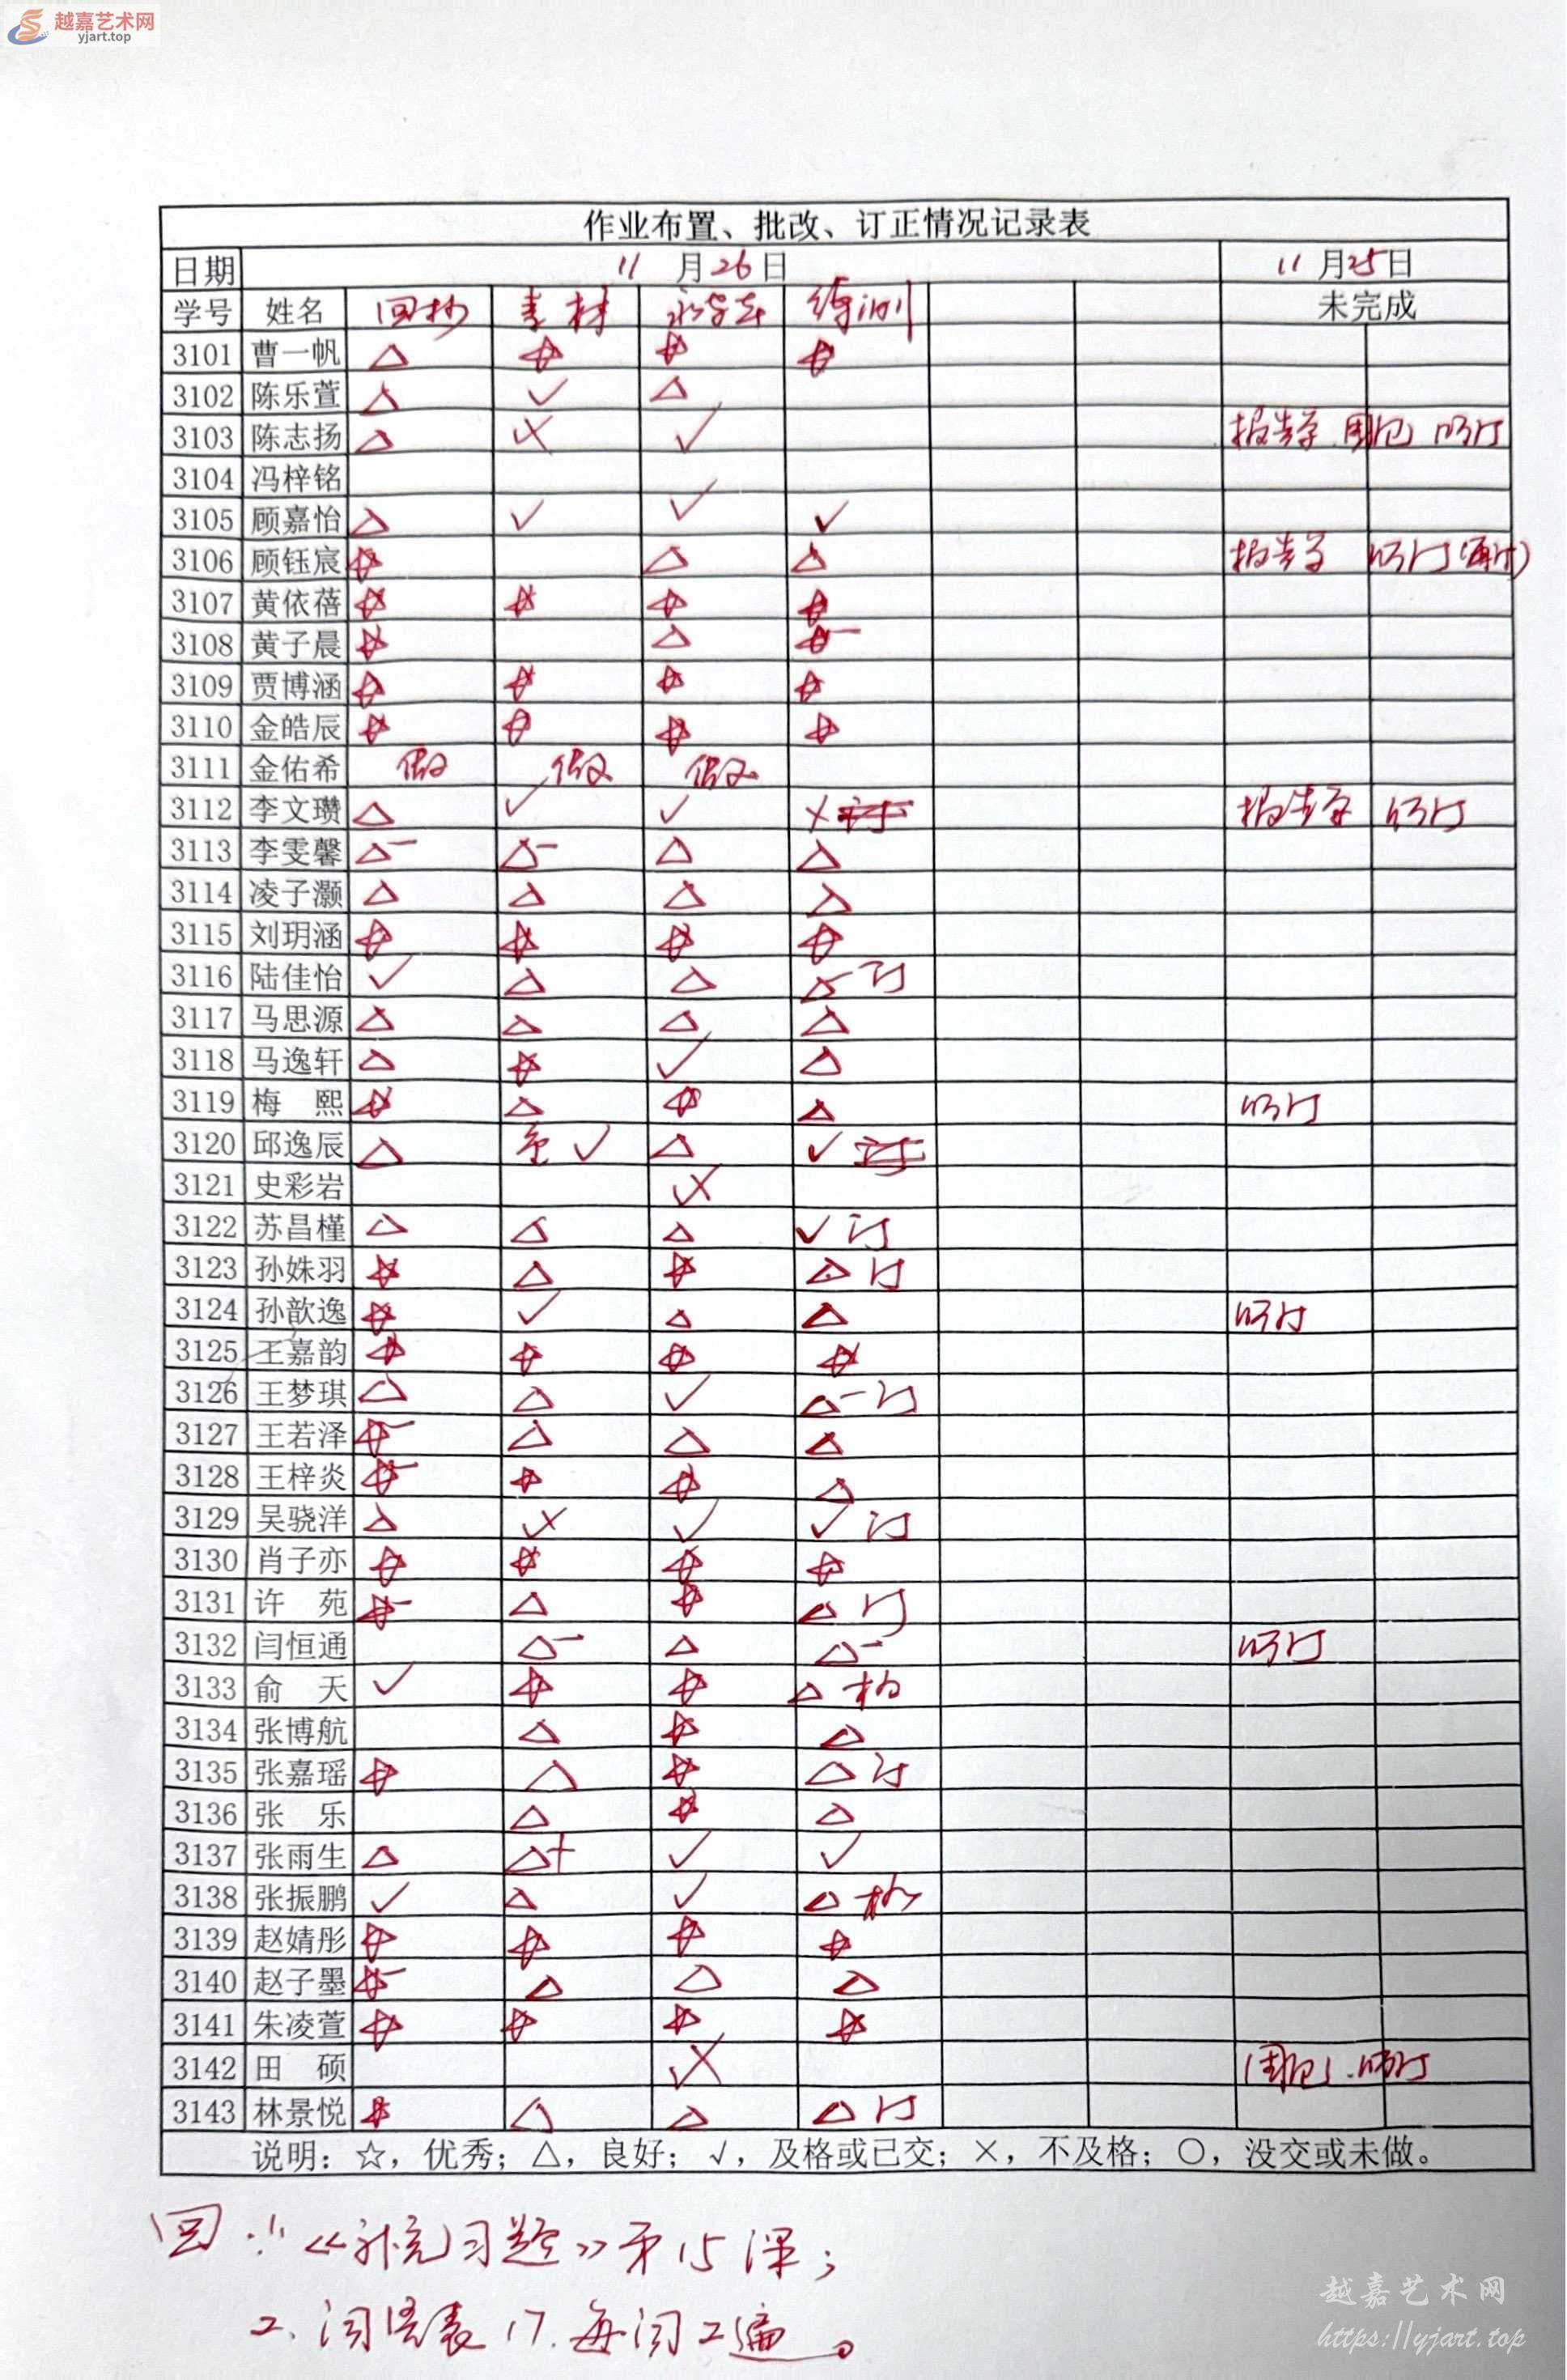 越嘉艺术网
yjart.top
作业布置、批改、订正情况记录表
日期 11月26日 11月25日
学号 姓名 回抄 素材 练训 未完成
3101 曹一帆 △ ☆ ☆ ☆
3102 陈乐萱 △ ✓ △
3103 陈志扬 △ × ✓
3104 冯梓铭
3105 顾嘉怡 △ ✓ ✓ ✓
3106 顾钰宸 ☆ △ △
3107 黄依蓓 ☆ ☆ ☆ ☆
3108 黄子晨 ☆ △ ☆-
3109 贾博涵 ☆ ☆ ☆ ☆
3110 金皓辰 ☆ ☆ ☆ ☆
3111 金佑希 做 做 做
3112 李文瓒 △ ✓ ✓ ×
3113 李雯馨 △- △- △ △
3114 凌子灏 △ △ △ △
3115 刘玥涵 ☆ ☆ ☆ ☆
3116 陆佳怡 ✓ △ △ △- 订
3117 马思源 △ △ △ △
3118 马逸轩 △ ☆ ✓ △
3119 梅 熙 ☆ △ ☆ △
3120 邱逸辰 △ ✓ △ ✓
3121 史彩岩 ×
3122 苏昌槿 △ △ △ ✓ 订
3123 孙姝羽 ☆ △ ☆ △ 订
3124 孙歆逸 ☆ ✓ △ △
3125 王嘉韵 ☆ ☆ ☆ ☆
3126 王梦琪 △ △ ✓ △- 订
3127 王若泽 ☆- △ △ △
3128 王梓炎 ☆- ☆ ☆ △
3129 吴骁洋 △ × ✓ ✓ 订
3130 肖子亦 ☆ ☆ ☆ ☆
3131 许 苑 ☆- △ ☆ △ 订
3132 闫恒通 △- △ △-
3133 俞 天 ✓ ☆ ☆ △
3134 张博航 △ ☆ △
3135 张嘉瑶 ☆ △ ☆ △ 订
3136 张 乐 △ ☆ △
3137 张雨生 △ △+ ✓ ✓
3138 张振鹏 ✓ △ ✓ △
3139 赵婧彤 ☆ ☆ ☆ ☆
3140 赵子墨 ☆- △ △ △
3141 朱凌萱 ☆ ☆ ☆ ☆
3142 田 硕 ×
3143 林景悦 ☆ △ △ △ 订
说明：☆，优秀；△，良好；√，及格或已交；×，不及格；○，没交或未做。
回：1.《补充习题》第15课；
2. 词语表17.每词2遍。
越嘉艺术网
https://yjart.top